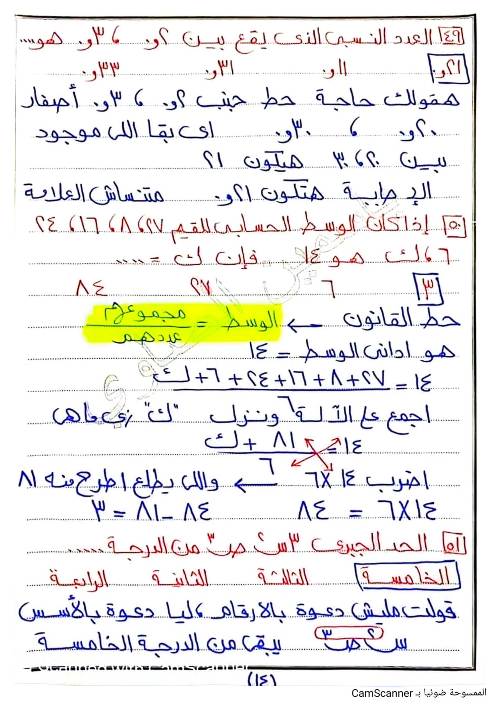 ٤٩ العدد النسبى الذى يقع بين ٢و. ، ٣و. هو....
٢١و. ١١و. ٣١و. ٣٣و.
هقولك حاجة حط جنب ٢و. ، ٣و. أصفار
٢٠و. ، ٣٠و. اى بقا اللى موجود
بين ٢٠، ٣٠ هيكون ٢١
الإجابة هتكون ٢١و. متنساش العلامة
٥٠ إذا كان الوسط الحسابى للقيم ٢٧، ٨، ١٦، ٢٤
٦، ك هو ١٤ فإن ك = ....
٣ ٦ ٢٧ ٨٤
حط القانون ← الوسط = مجموعهم / عددهم
هو ادانى الوسط = ١٤
١٤ = ٢٧+٨+١٦+٢٤+٦+ك
٦
اجمع على الآلة ونزل "ك" زى ماهى
١٤ = ٨١ + ك / ٦
اضرب ١٤ × ٦ ← واللى يطلع اطرح منه ٨١
١٤×٦ = ٨٤ ٨٤ - ٨١ = ٣
٥١ الحد الجبرى ٣س٢ ص٣ من الدرجة .....
الخامسة الثالثة الثانية الرابعة
قولت مليش دعوة بالارقام، ليا دعوة بالأسس
س٢ ص٣ يبقى من الدرجة الخامسة
Scanned with CamScanner
(١٤)
الممسوحة ضوئيا بـ CamScanner